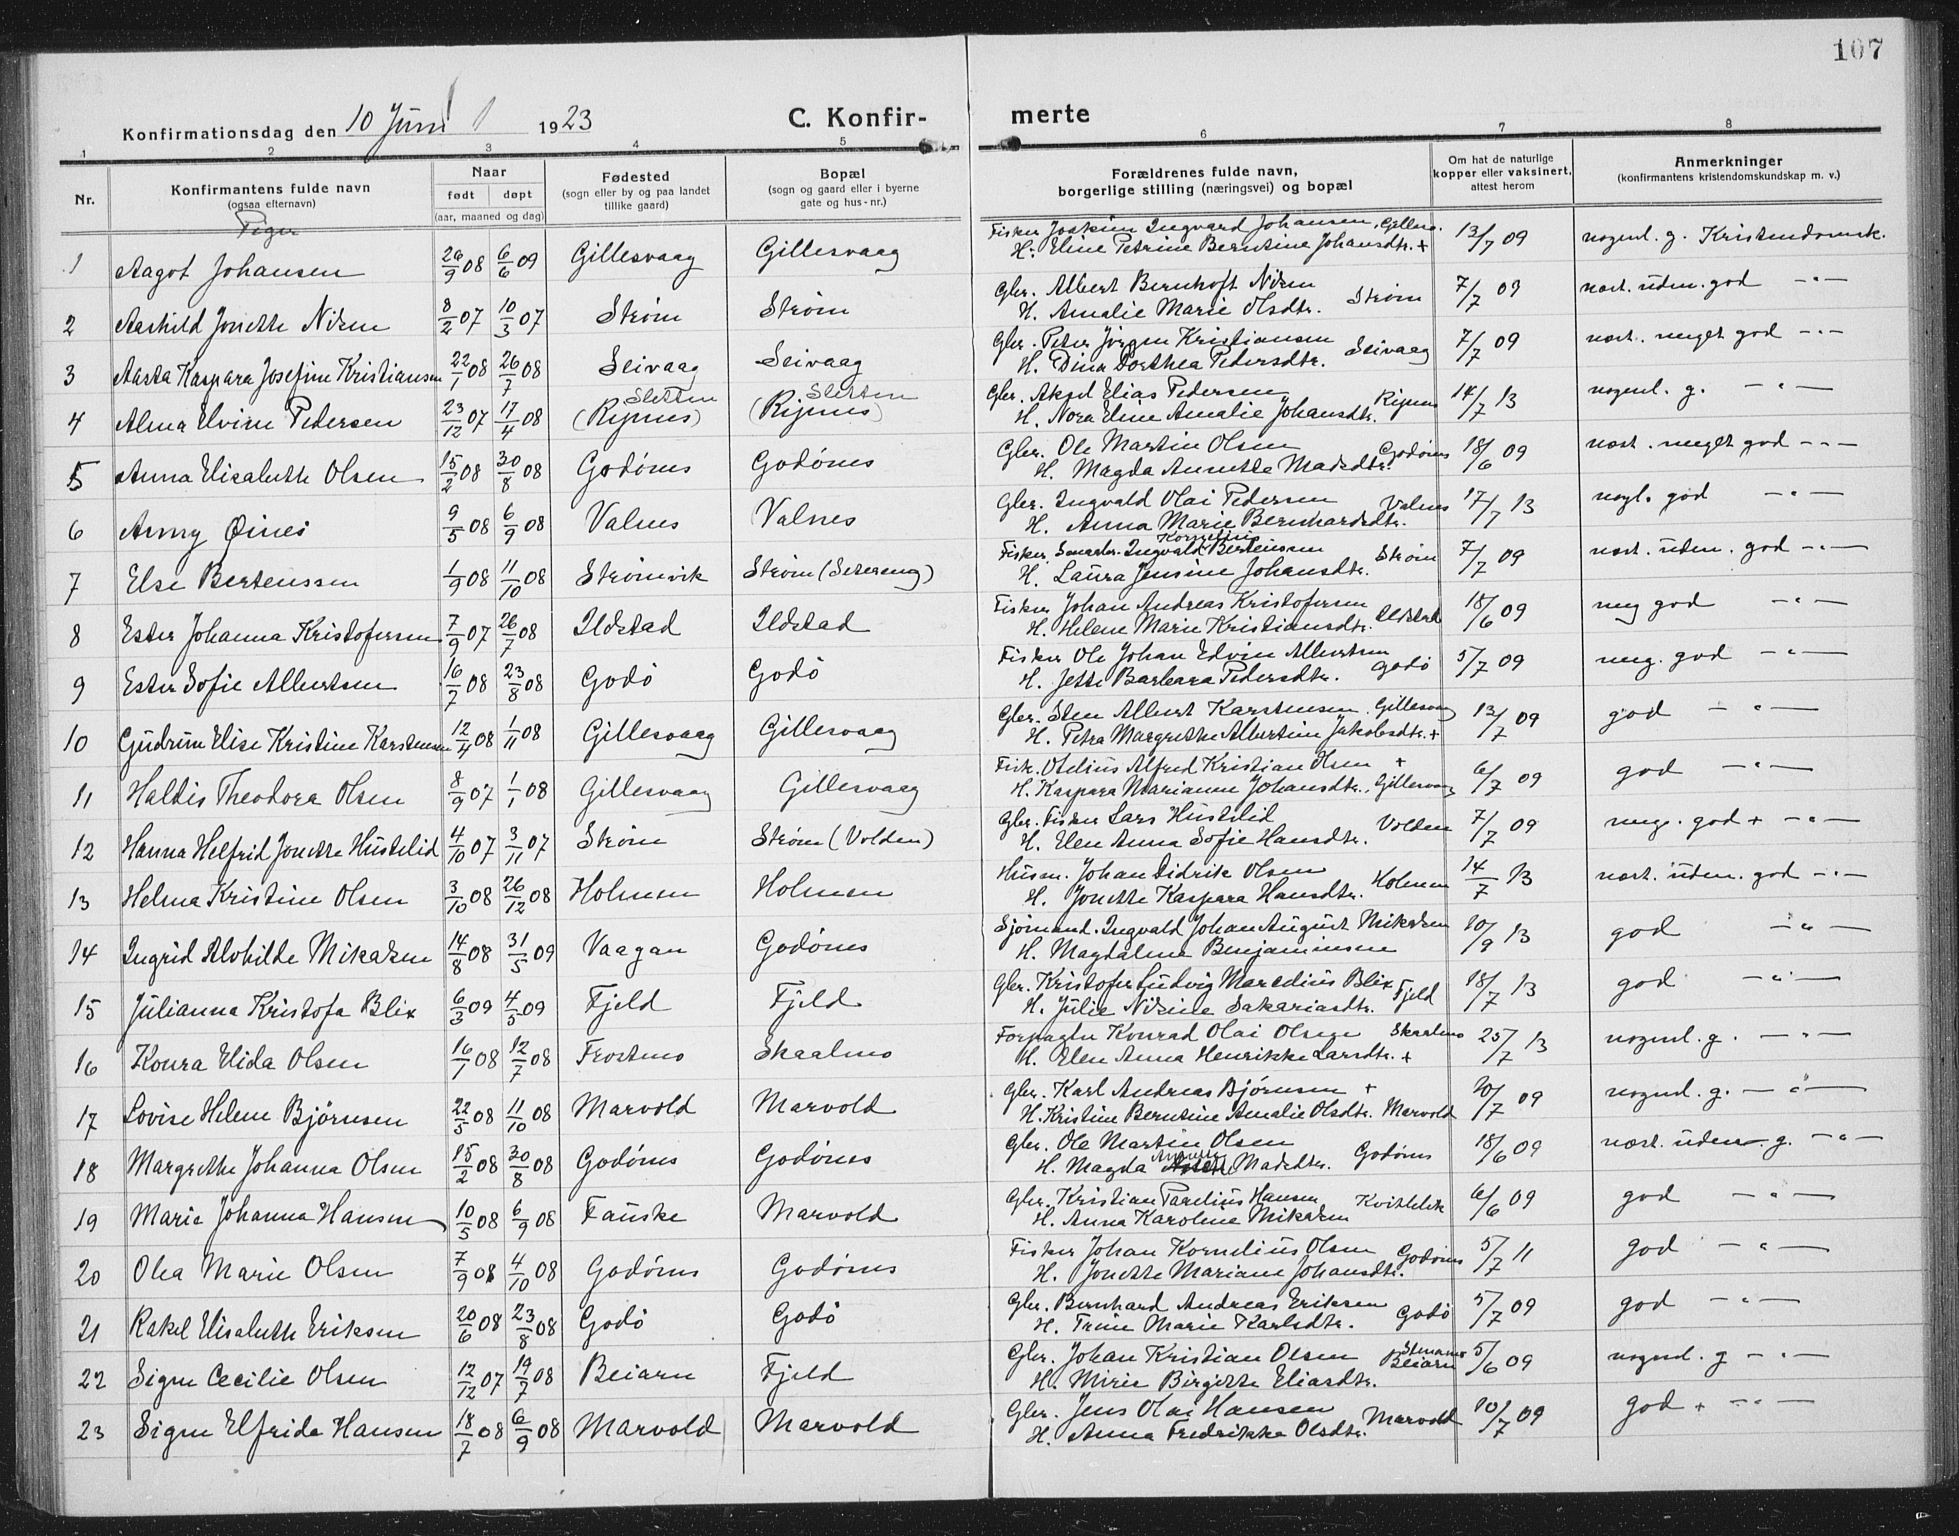 107
Konfirmationsdag den 10 Juni 1923 C. Konfir- merte
1 2 3 4 5 6 7 8
Nr. Konfirmantens fulde navn (ogsaa efternavn) Naar født døpt (aar, maaned og dag) Fødested (sogn eller by og paa landet tillike gaard) Bopæl (sogn og gaard eller i byerne gate og hus-nr.) Forældrenes fulde navn, borgerlige stilling (næringsvei) og bopæl Om hat de naturlige kopper eller vaksinert, attest herom Anmerkninger (konfirmantens kristendomskundskap m. v.)
Piger
1 Aagot Johansen 26/9 08 6/6 09 Gillesvaag Gillesvaag Fisker Joakim Ingvard Johansen, Gillesv. 13/7 09 nogenl. g. Kristendomsk.
H. Eline Petrine Berntine Johansdtr. +
2 Aashild Jonette Nilsen 8/2 07 10/3 07 Strøm Strøm Gbr. Albert Bernhoft Nilsen Strøm 7/7 09 næst. uden. god -"-
H. Amalie Marie Olsdtr.
3 Aasta Kaspara Josefine Kristiansen 22/1 08 26/7 08 Seivaag Seivaag Gbr. Peter Jörgen Kristiansen Seivaag 7/7 09 næst. meget god -"-
H. Dina Dorthea Pedersdtr.
4 Alma Elvine Pedersen 23/12 07 17/4 08 (Rijnes) Sletten (Rijnes) Sletten Gbr. Aksel Elias Pedersen Rijnes 14/7 13 nogenl. g. -"-
H. Nora Eline Amalie Johansdtr.
5 Anna Elisabeth Olsen 15/2 08 30/8 08 Godønes Godønes Gbr. Ole Martin Olsen Godønes 18/6 09 næst. meget god -"-
H. Magda Annette Madsdtr.
6 Anny Øines 9/5 08 6/9 08 Valnes Valnes Gbr. Ingvald Olai Pedersen Valnes 17/7 13 nogl. god -"-
H. Anna Marie Bernhardsdtr.
7 Else Bertenssen 1/9 08 11/10 08 Strømvik Strøm (Setereng) Fisker, Ingvald Kornelius Bertenssen Strøm 7/7 09 næst. uden. god -"-
H. Laura Jensine Johansdtr.
8 Ester Johanna Kristofersen 7/9 07 26/7 08 Ildstad Ildstad Fisker Johan Andreas Kristofersen Ildstad 18/6 09 meg god -"-
H. Helene Marie Kristiansdtr.
9 Ester Sofie Albertsen 16/7 08 23/8 08 Godö Godö Fisker Ole Johan Edvin Albertsen Godö 5/7 09 meg. god -"-
H. Jette Barbara Pedersdtr.
10 Gudrun Elise Kristine Karstensen 12/4 08 1/11 08 Gillesvaag Gillesvaag Gbr. Sten Albert Karstensen, Gillesvaag 13/7 09 god -"-
H. Petra Margrethe Albertine Jakobsdtr. +
11 Haldis Theodora Olsen 8/9 07 1/1 08 Gillesvaag Gillesvaag Fisk. Otelius Alfred Kristian Olsen + 6/7 09 god -"-
H. Kaspara Marianne Johansdtr., Gillesvaag
12 Hanna Helfrid Jonette Hustelid 4/10 07 3/11 07 Strøm Strøm (Volden) Gbr. Fisker Lars Hustelid Volden 7/7 09 meg. god + -"-
H. Elen Anna Sofie Hansdtr.
13 Helma Kristine Olsen 3/10 08 26/12 08 Holmen Holmen Husm. Johan Didrik Olsen Holmen 14/7 13 næst. uden. god -"-
H. Jonette Kaspara Hansdtr.
14 Ingrid Alvhilde Mikalsen 14/8 08 31/5 09 Vaagan Godønes Sjømand. Ingvald Johan August Mikalsen 20/9 13 god -"-
H. Magdalene Benjaminsen
15 Julianna Kristofa Blix 6/3 09 4/5 09 Fjeld Fjeld Gbr. Kristofer Ludvig Marelius Blix Fjeld 18/7 13 god -"-
H. Julie Nilsine Sakariasdtr.
16 Konra Elida Olsen 16/1 08 12/7 08 Frostmo Skaalmo Forpagter Konrad Olai Olsen Skaalmo 25/7 13 nogenl. g. -"-
H. Elen Anna Henrikke Larsdtr. +
17 Lovise Helene Bjørnsen 22/5 08 11/10 08 Marvold Marvold Gbr. Karl Andreas Bjørnsen + 20/7 09 nogenl. g. -"-
H. Kristine Berntine Amalie Olsdtr. Marvold
18 Margrethe Johanna Olsen 15/2 08 30/8 08 Godønes Godønes Gbr. Ole Martin Olsen Godønes 18/6 09 næst. uden g. -"-
H. Magda Annette Madsdtr.
19 Marie Johanna Hansen 10/5 08 6/9 08 Fauske Marvold Gbr. Kristian Parelius Hansen 6/6 09 god -"-
H. Anna Karoline Mikalsen
20 Olea Marie Olsen 7/9 08 4/10 08 Godønes Godønes Fisker Johan Kornelius Olsen Godønes 5/7 11 god -"-
H. Jonette Mariane Johansdtr.
21 Rakel Elisabeth Eriksen 20/6 08 23/8 08 Godö Godö Gbr. Bernhard Andreas Eriksen Godö 5/7 09 god -"-
H. Trine Marie Karlsdtr.
22 Signe Cecilie Olsen 12/12 07 19/7 08 Beiarn Fjeld Gbr. Johan Kristian Olsen Beiarn 5/6 09 nogenl. g -"-
H. Mirie Birgitte Eliasdtr.
23 Signe Elfride Hansen 18/7 08 6/9 08 Marvold Marvold Gbr. Jens Olai Hansen Marvold 20/7 09 god + -"-
H. Anna Fredrikke Olsdtr.